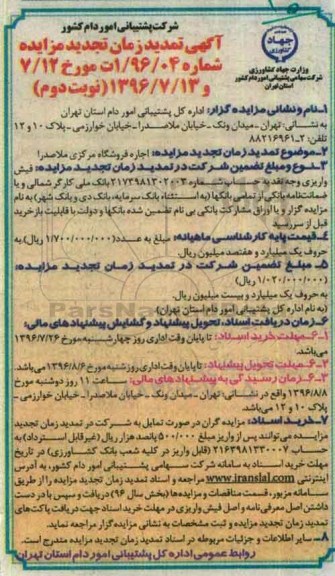 شرکت پشتیبانی امور دام کشور
آگهی تمدید زمان تجدید مزایده
شماره ۱/۹۶/۰۴ت مورخ ۷/۱۲
و ۱۳۹۶/۷/۱۳ (نوبت دوم)
جهاد
کشاورزی
وزارت جهاد کشاورزی
شرکت سهامی پشتیبانی امور دام کشور
استان تهران
۱-نام و نشانی مزایده گزار: اداره کل پشتیبانی امور دام استان تهران
به نشانی: تهران -میدان ونک -خیابان ملاصدرا -خیابان خوارزمی -پلاک ۱۰ و ۱۲
تلفن: ۲-۸۸۲۱۶۹۶۱
۲-موضوع تمدید زمان تجدید مزایده: اجاره فروشگاه مرکزی ملاصدرا
۳-نوع و مبلغ تضمین شرکت در تمدید زمان تجدید مزایده: فیش
واریزی وجه نقد به حساب شماره ۲۱۷۳۹۸۱۳۰۲۰۰۳ بانک ملی کارگر شمالی و یا
ضمانت‌نامه بانکی از تمامی بانکها (به استثناء بانک سرمایه، بانک دی و بانک شهر) به نام
مزایده گزار و یا اوراق مشارکت بانکی بی نام تضمین شده بانکها و دولت با قابلیت باز خرید
قبل از سررسید
۴-قیمت پایه کارشناسی ماهیانه: مبلغ به عدد (۱/۷۰۰/۰۰۰/۰۰۰ ریال) به
حروف یک میلیارد و هفتصد میلیون ریال.
۵-مبلغ تضمین شرکت در تمدید زمان تجدید مزایده:
(۱/۰۲۰/۰۰۰/۰۰۰)
به حروف یک میلیارد و بیست میلیون ریال.
(به نام اداره کل پشتیبانی امور دام استان تهران)
۶-زمان دریافت اسناد، تحویل پیشنهاد و گشایش پیشنهادهای مالی:
۶-۱-مهلت خرید اسناد: تا پایان وقت اداری روز چهارشنبه مورخ ۱۳۹۶/۷/۲۶
می‌باشد.
۶-۲-مهلت تحویل پیشنهاد: تا پایان وقت اداری روز شنبه مورخ ۱۳۹۶/۸/۶ می‌باشد.
۶-۳-زمان رسیدگی به پیشنهادهای مالی: ساعت ۱۱ روز دوشنبه مورخ
۱۳۹۶/۸/۸ واقع در نشانی: تهران -میدان ونک -خیابان ملاصدرا -خیابان خوارزمی -
پلاک ۱۰ و ۱۲ می‌باشد.
۷-خرید اسناد: مزایده گران در صورت تمایل به شرکت در تمدید زمان تجدید
مزایده می‌توانند پس از واریز مبلغ ۵۰۰/۰۰۰ پانصد هزار ریال (غیر قابل استرداد) به
حساب ۲۱۶۳۹۸۱۳۳۰۰۰۷ (قابل واریز در کلیه شعب بانک کشاورزی) در تاریخ
مهلت خرید اسناد به سامانه شرکت سهامی پشتیبانی امور دام کشور، به آدرس
اینترنتی www.iranslal.com مراجعه و اسناد تمدید زمان تجدید مزایده را از طریق
سامانه مزبور، قسمت مناقصات و مزایده‌ها (بخش سال ۹۶) دریافت و سپس با در دست
داشتن اصل معرفی‌نامه و اصل فیش واریزی در مهلت خرید اسناد جهت دریافت پاکت‌های
تمدید زمان تجدید مزایده و ثبت مشخصات به نشانی مزایده گزار مراجعه نماید.
۸-سایر اطلاعات و جزئیات مربوطه در اسناد تمدید زمان تجدید مزایده مندرج است.
روابط عمومی اداره کل پشتیبانی امور دام استان تهران